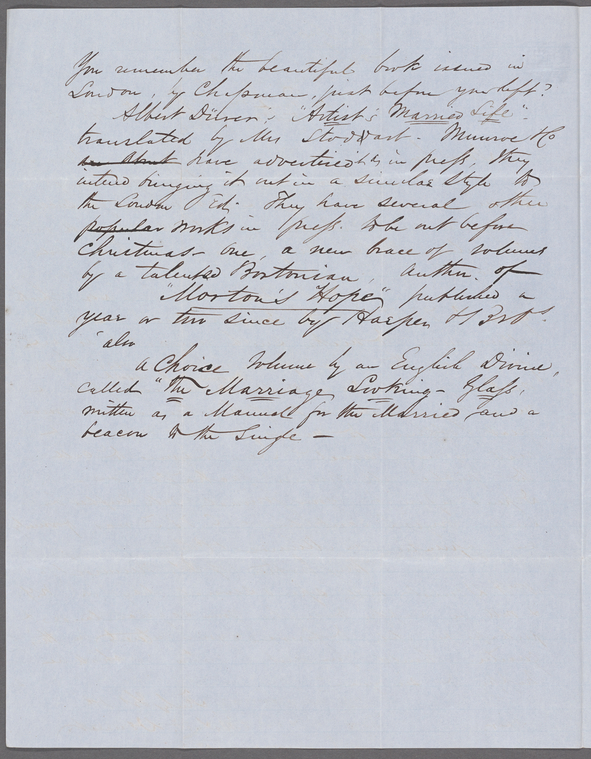 You remember the beautiful book issued in
London, by Chapman, just before you left?
Albert Dürer's "Artist's Married Life"
translated by Mrs Stoddart - Munroe & Co
have advertised in press. They
intend bringing it out in a similar Style to
the London Ed: They have several other
popular works in press to be out before
Christmas - One, a new brace of volumes
by a talented Bostonian, author of
"Morton's Hope" published a
year or two since by Harper & Bros.
"also
a Choice Volume by an English Divine,
called "the Marriage Looking-Glass,
written as a Manual for the Married and a
beacon to the Single -